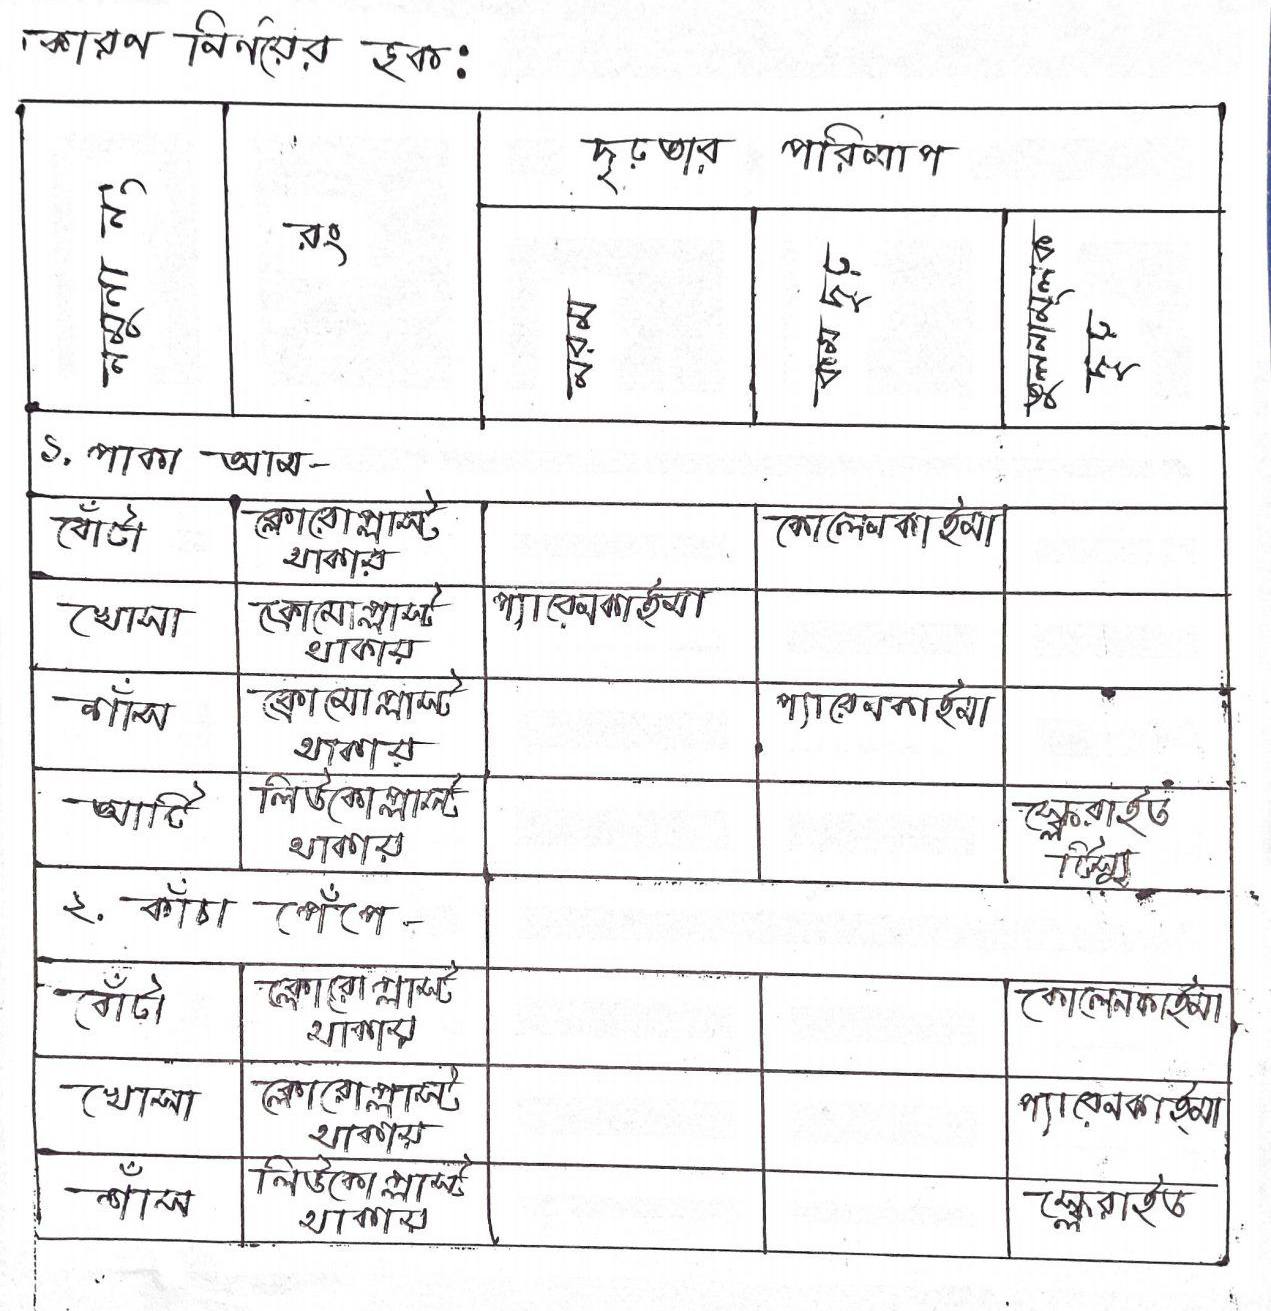 কারণ নির্ণয়ের ছক:
নমুনা নং
রং
দৃঢ়তার পরিমাপ
নরম
কম দৃঢ়
তুলনামূলক দৃঢ়
১. পাকা আম-
বোঁটা
ক্লোরোপ্লাস্ট থাকায়
কোলেনকাইমা
খোসা
ক্রোমোপ্লাস্ট থাকায়
প্যারেনকাইমা
শাঁস
ক্রোমোপ্লাস্ট থাকায়
প্যারেনকাইমা
আটি
লিউকোপ্লাস্ট থাকায়
স্ক্লেরাইড টিস্যু
২. কাঁচা পেঁপে-
বোঁটা
ক্লোরোপ্লাস্ট থাকায়
কোলেনকাইমা
খোসা
ক্লোরোপ্লাস্ট থাকায়
প্যারেনকাইমা
শাঁস
লিউকোপ্লাস্ট থাকায়
স্ক্লেরাইড